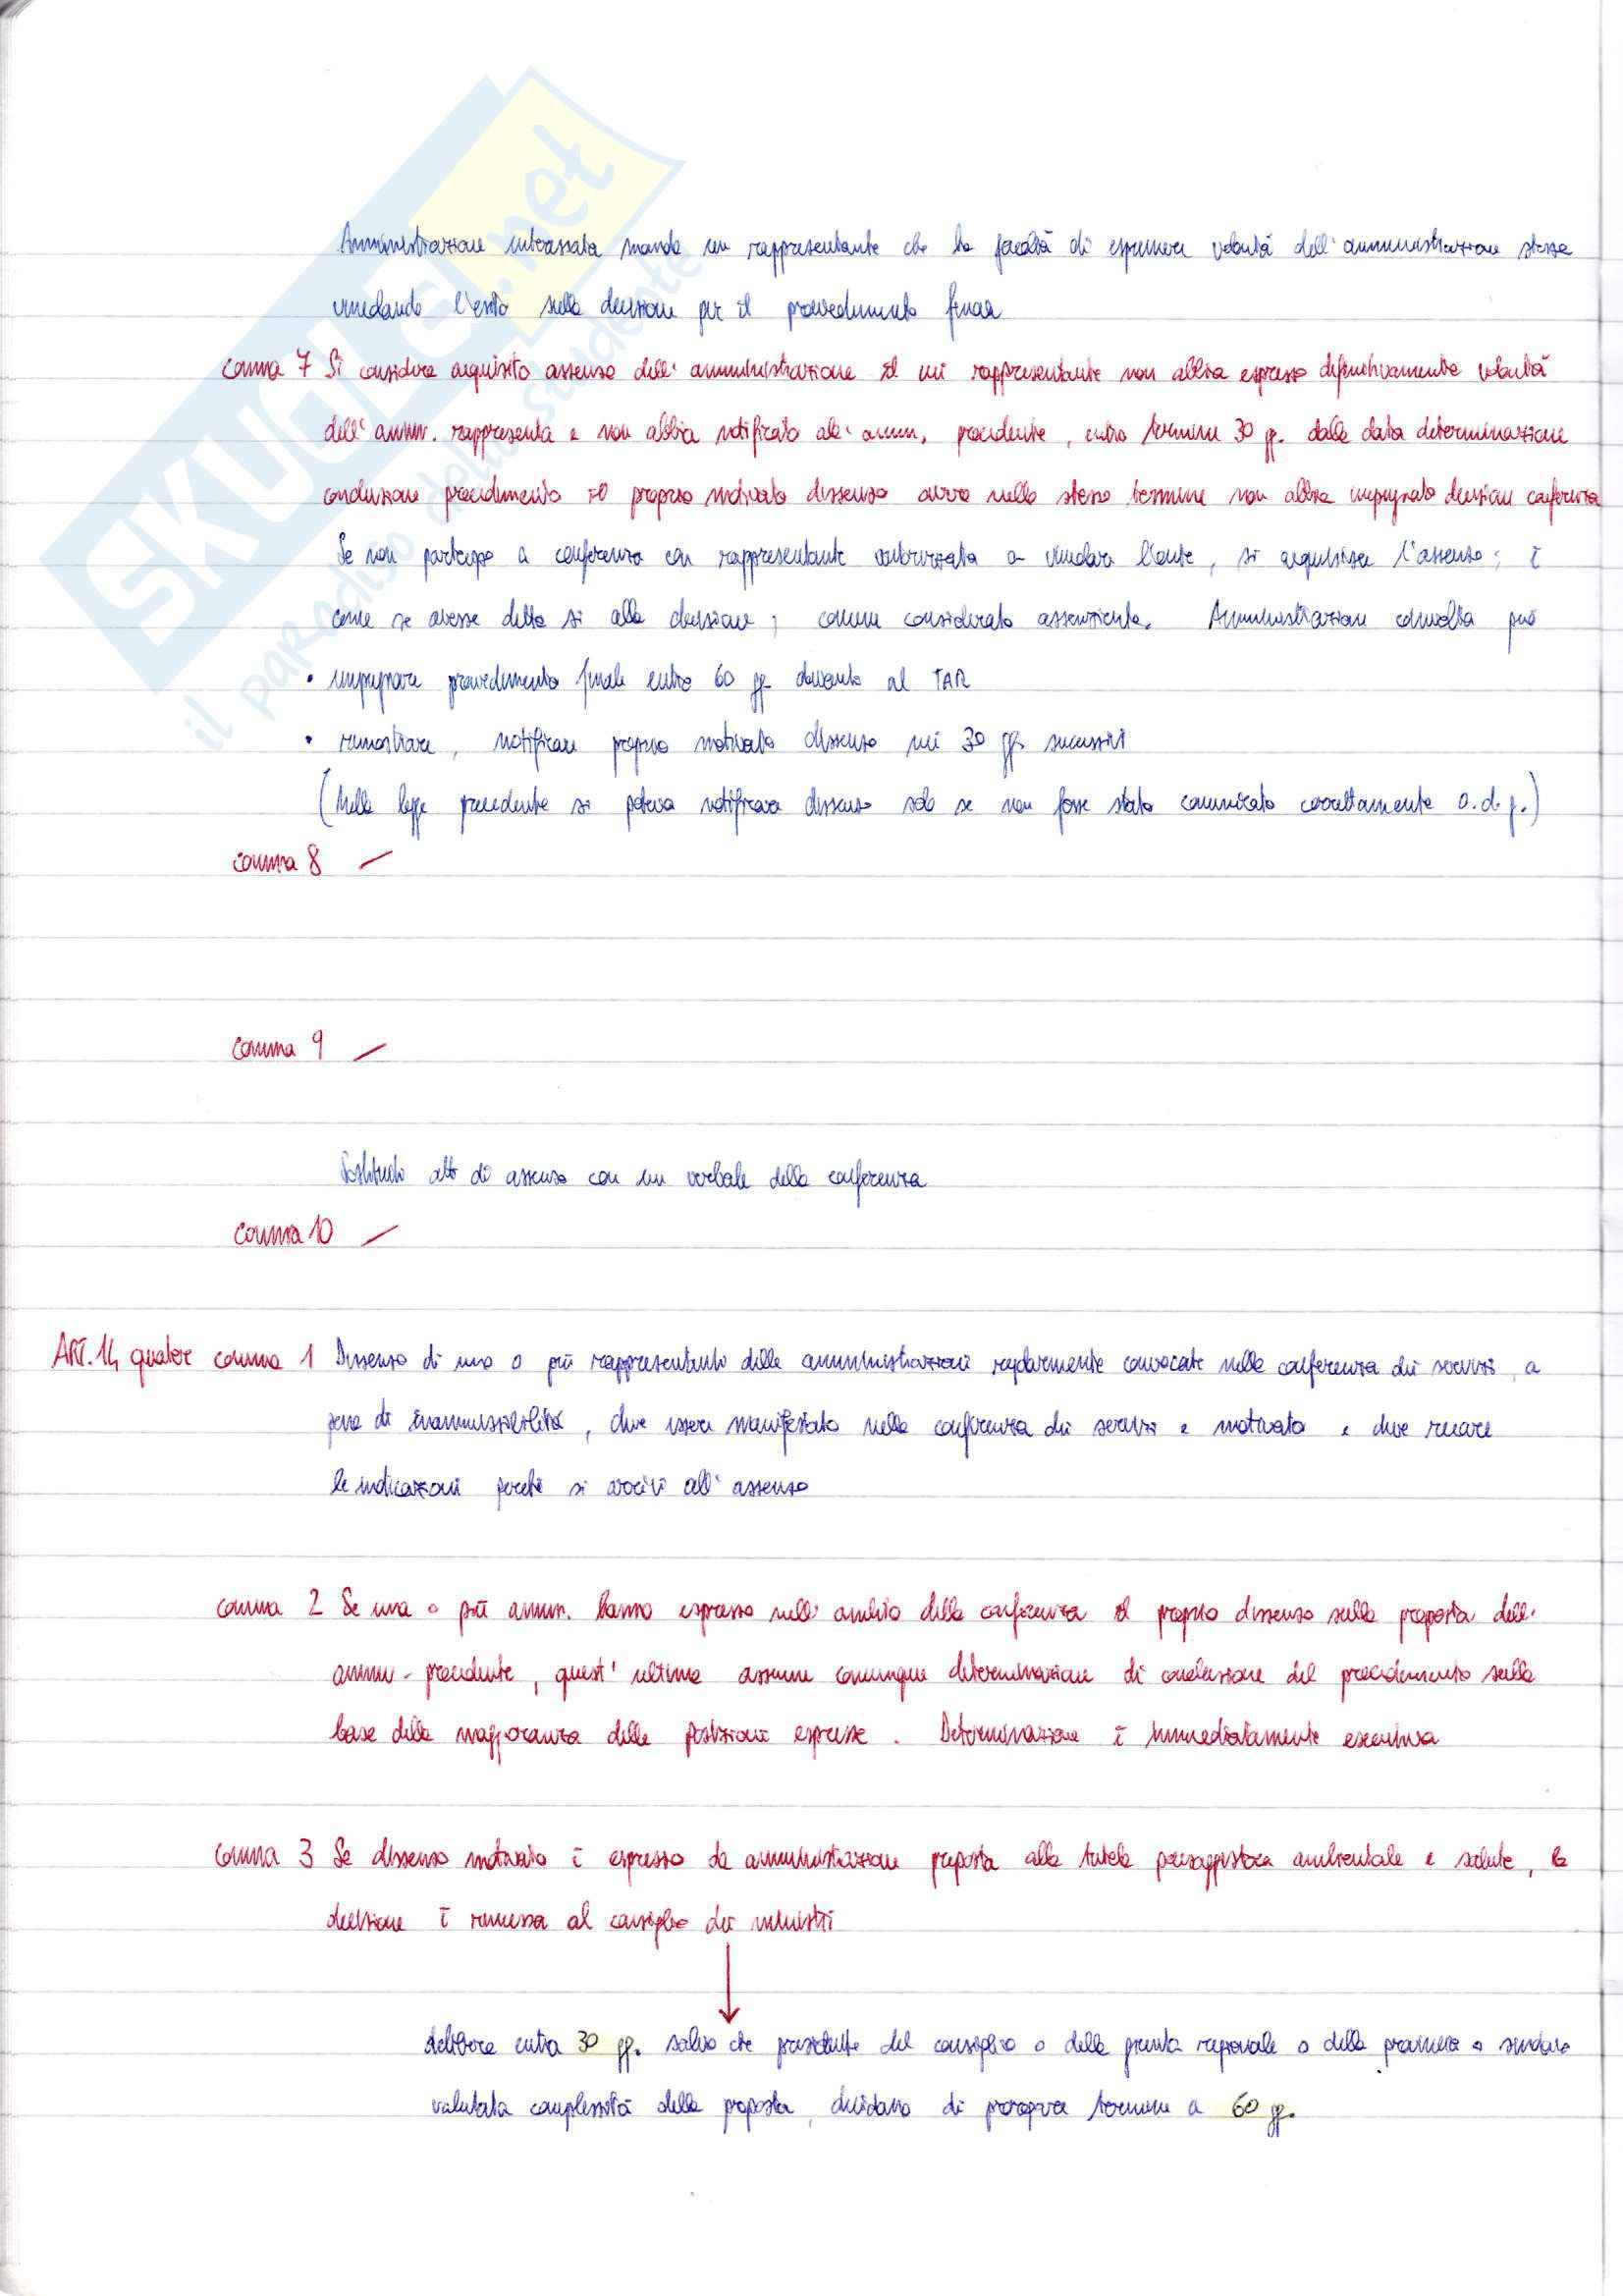 SKUOLA.net
il paradiso dello studente
Amministrazione interessata manda un rappresentante che ha facoltà di esprimere volontà dell'amministrazione stessa
vincolando l'ente sulla decisione per il provvedimento finale
comma 7 Si considera acquisito assenso dell'amministrazione il cui rappresentante non abbia espresso definitivamente volontà
dell'ammin. rappresenta e non abbia notificato all'amm. procedente, entro termine 30 gg. dalla data determinazione
conclusione procedimento il proprio motivato dissenso ovvero nello stesso termine non abbia impugnato decisioni conferenza
Se non partecipo a conferenza con rappresentante autorizzata a vincolare l'ente, si acquisisce l'assenso; è
come se avesse detto si alla decisione; comune considerato assenziente. Amministrazione coinvolta può
• impugnare provvedimento finale entro 60 gg. davanti al TAR
• rimostrare, notificare proprio motivato dissenso nei 30 gg. successivi
(Nella legge precedente si poteva notificare dissenso solo se non fosse stato comunicato correttamente o.d.g.)
comma 8 –
comma 9 –
Sostituiti atti di assenso con un verbale della conferenza
comma 10 –
ART. 14 quater comma 1 Dissenso di uno o più rappresentanti delle amministrazioni regolarmente convocate nella conferenza dei servizi, a
pena di inammissibilità, deve essere manifestato nella conferenza dei servizi e motivato e deve recare
le indicazioni perchè si arrivi all'assenso
comma 2 Se una o più ammin. hanno espresso nell'ambito della conferenza il proprio dissenso sulla proposta dell'
ammin. procedente, quest'ultima assume comunque determinazione di conclusione del procedimento sulla
base della maggioranza delle posizioni espresse. Determinazione è immediatamente esecutiva
comma 3 Se dissenso motivato è espresso da amministrazione preposta alla tutela paesaggistica ambientale e salute, la
decisione è rimessa al consiglio dei ministri
delibera entro 30 gg. salvo che presidente del consiglio o della giunta regionale o della provincia o sindaco
valutata complessità della proposta, decidano di prorogare termine a 60 gg.